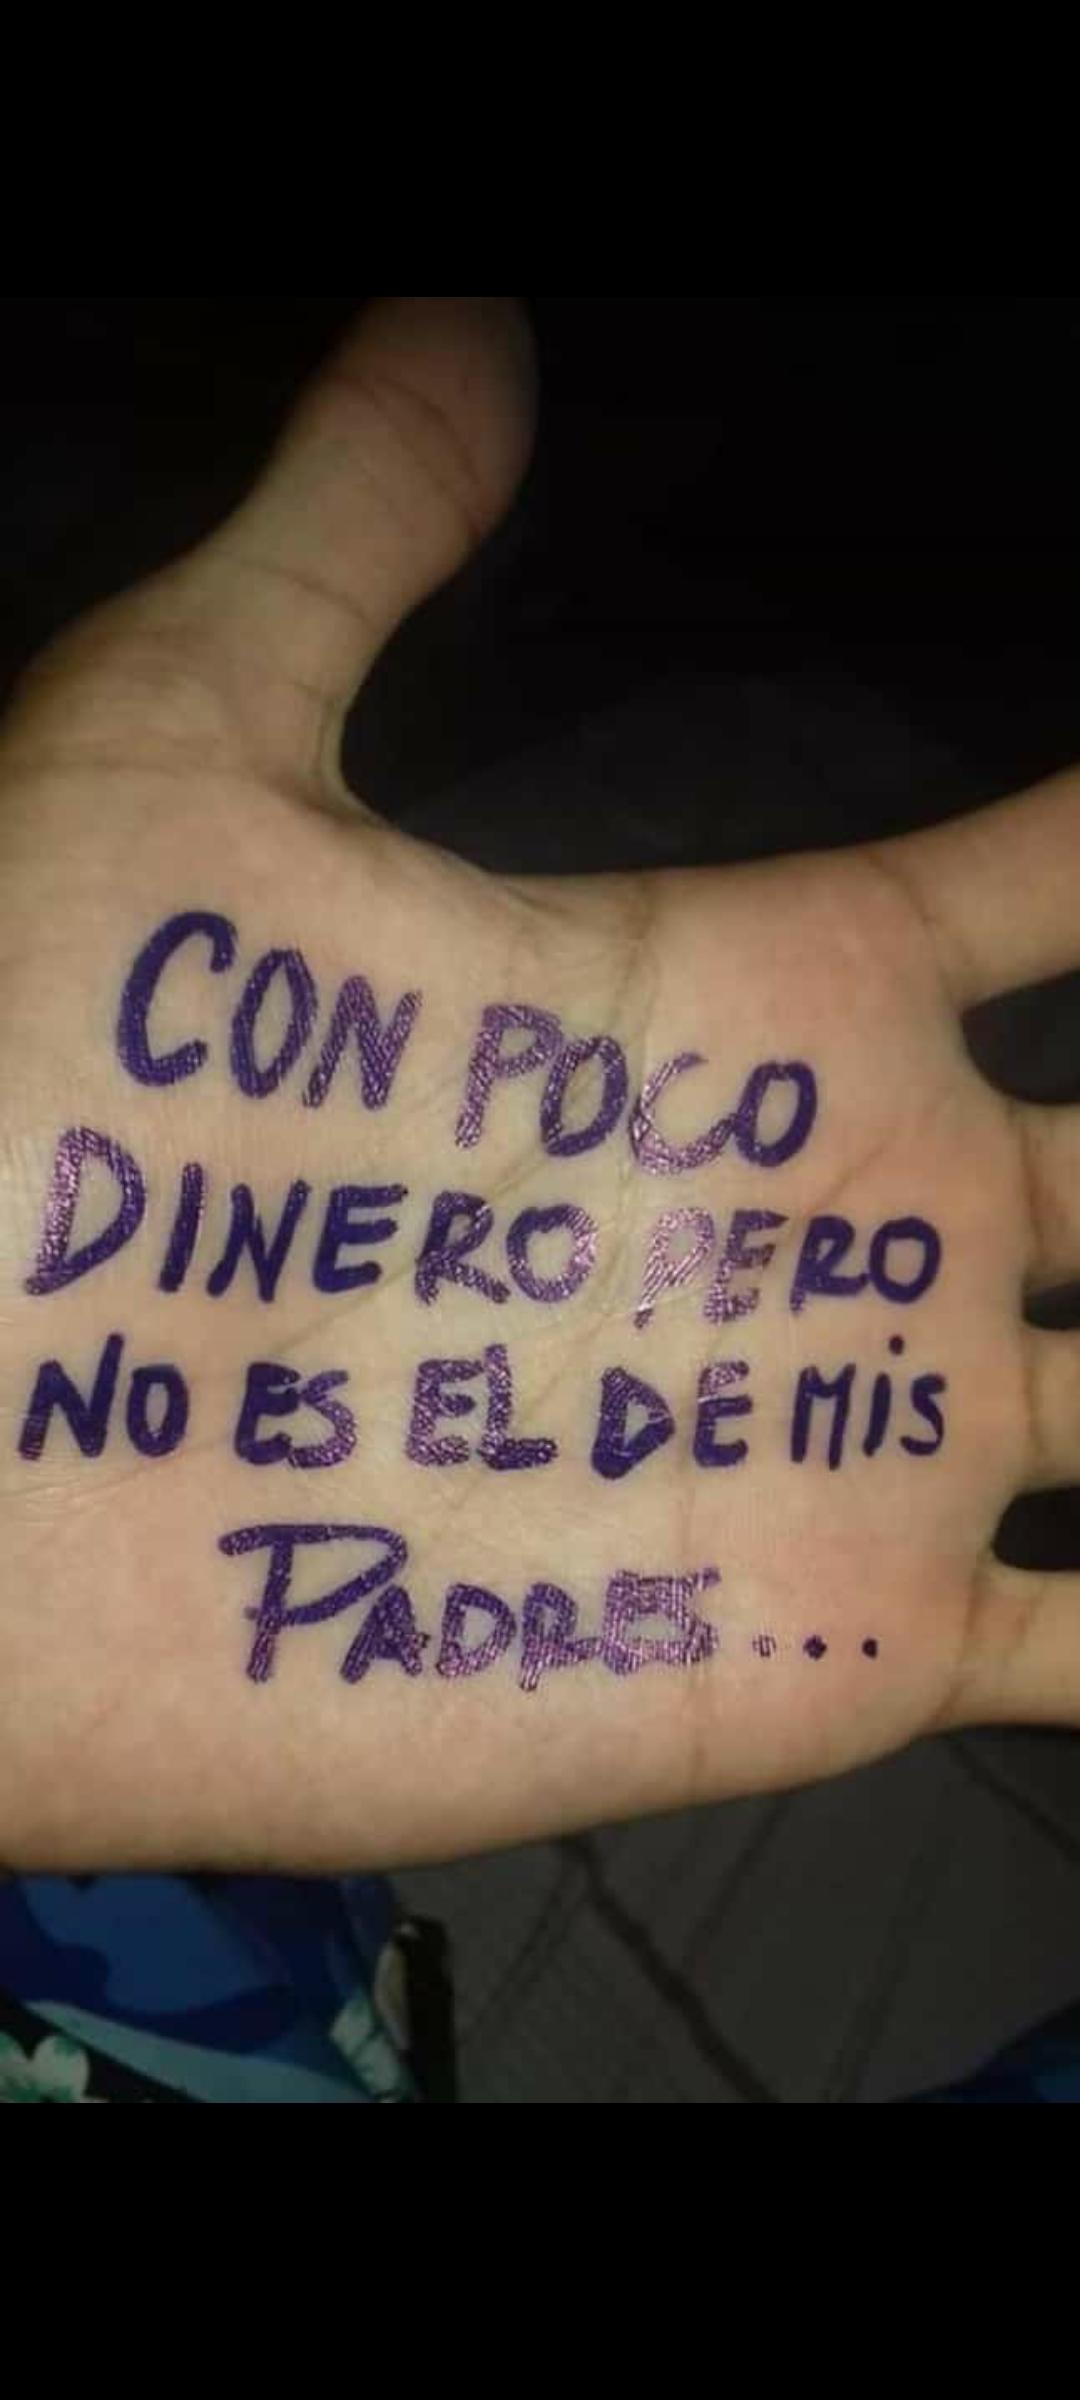 CON POCO
DINERO PERO
NO ES EL DE MiS
PADRES...